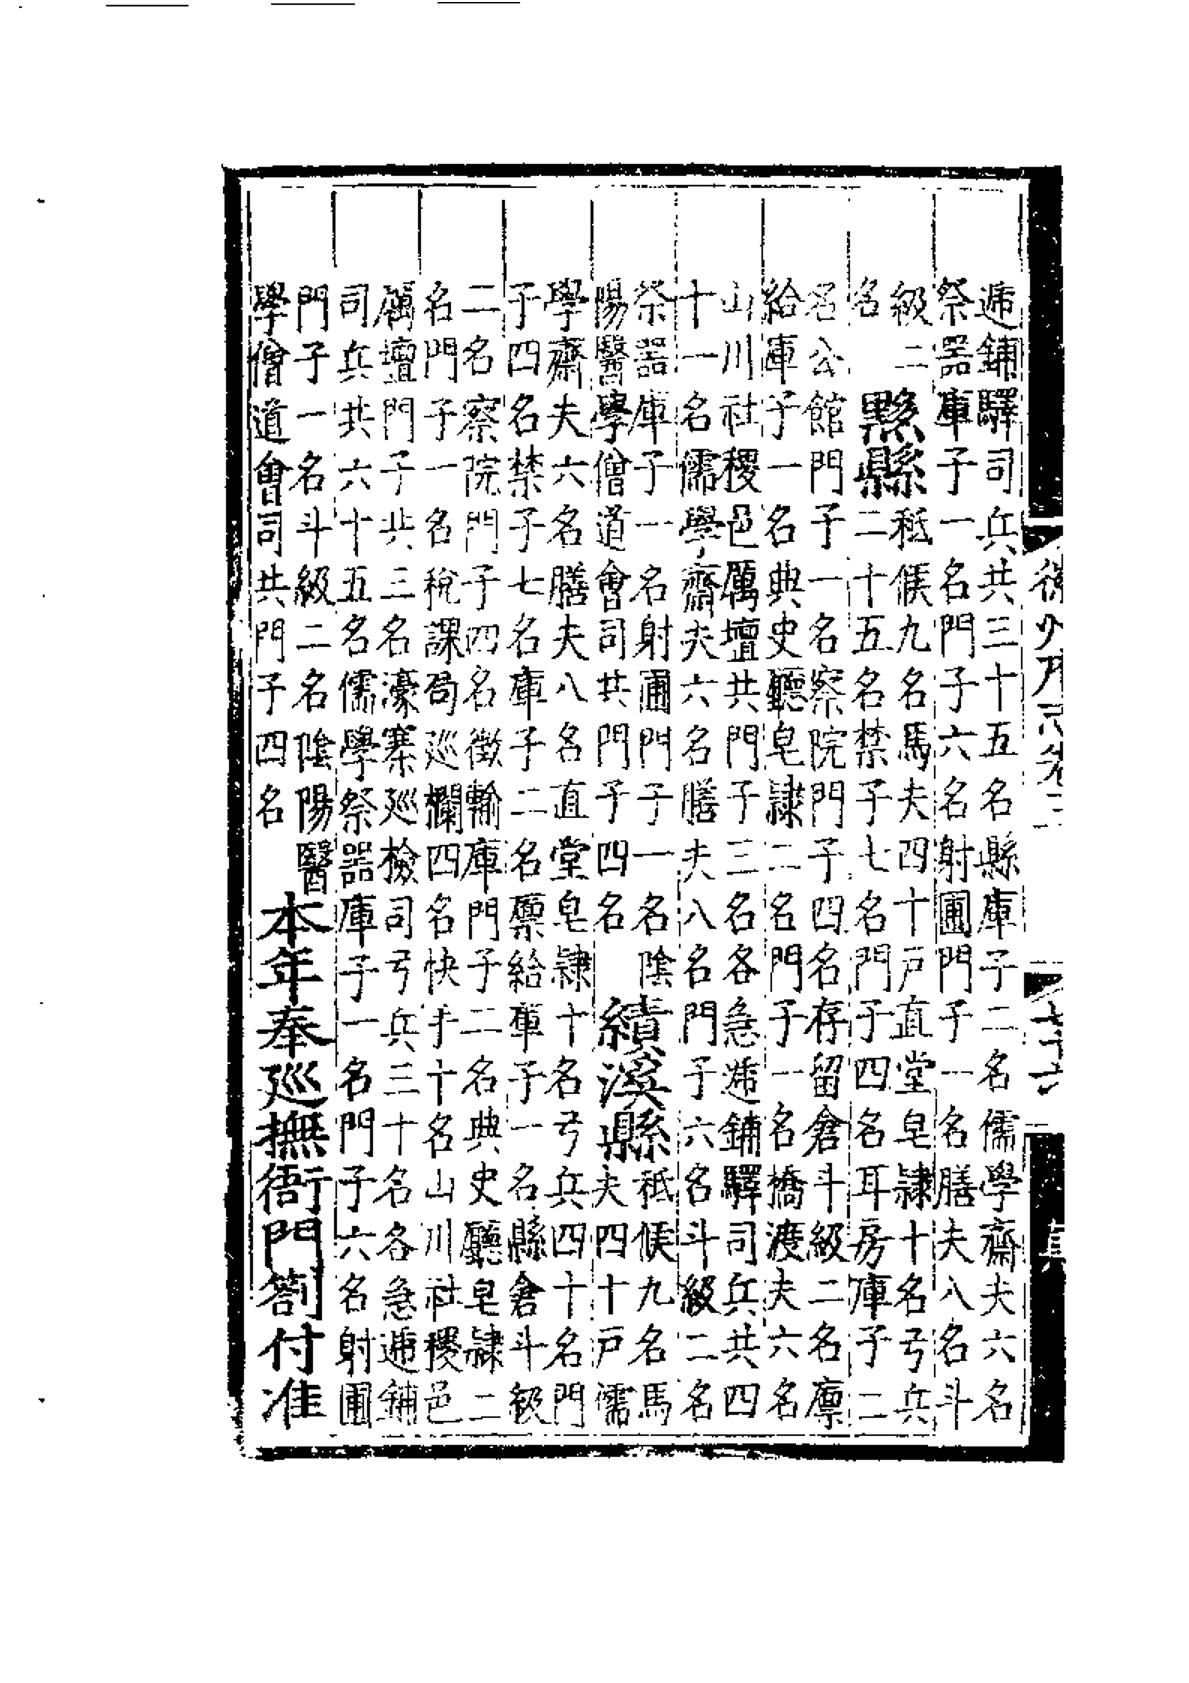 遞鋪驛司兵共三十五名縣庫子二名儒學齋夫六名
祭器庫子一名門子六名射圃門子一名膳夫八名斗
級二
名
黟縣
秪候九名馬夫四十戸直堂皂隸十名弓兵
二十五名禁子七名門子四名耳房庫子二
名公館門子一名察院門子四名存留倉斗級二名廪
給庫子一名典史廳皂隸二名門子一名橋渡夫六名
山川社稷邑厲壇共門子三名各急遞鋪驛司兵共四
十一名儒學齋夫六名膳夫八名門子六名斗級二名
祭器庫子一名射圃門子一名陰
陽醫學僧道會司共門子四名
績溪縣
秪候九名馬
夫四十戸儒
學齋夫六名膳夫八名直堂皂隸十名弓兵四十名門
子四名禁子七名庫子二名廪給庫子一名縣倉斗級
二名察院門子四名徵輸庫門子二名典史廳皂隸二
名門子一名稅課局廵欄四名快手十名山川社稷邑
厲壇門子共三名濠寨廵檢司弓兵三十名各急遞鋪
司兵共六十五名儒學祭器庫子一名門子六名射圃
門子一名斗級二名陰陽醫
學僧道會司共門子四名
本年奉廵撫衙門劄付准